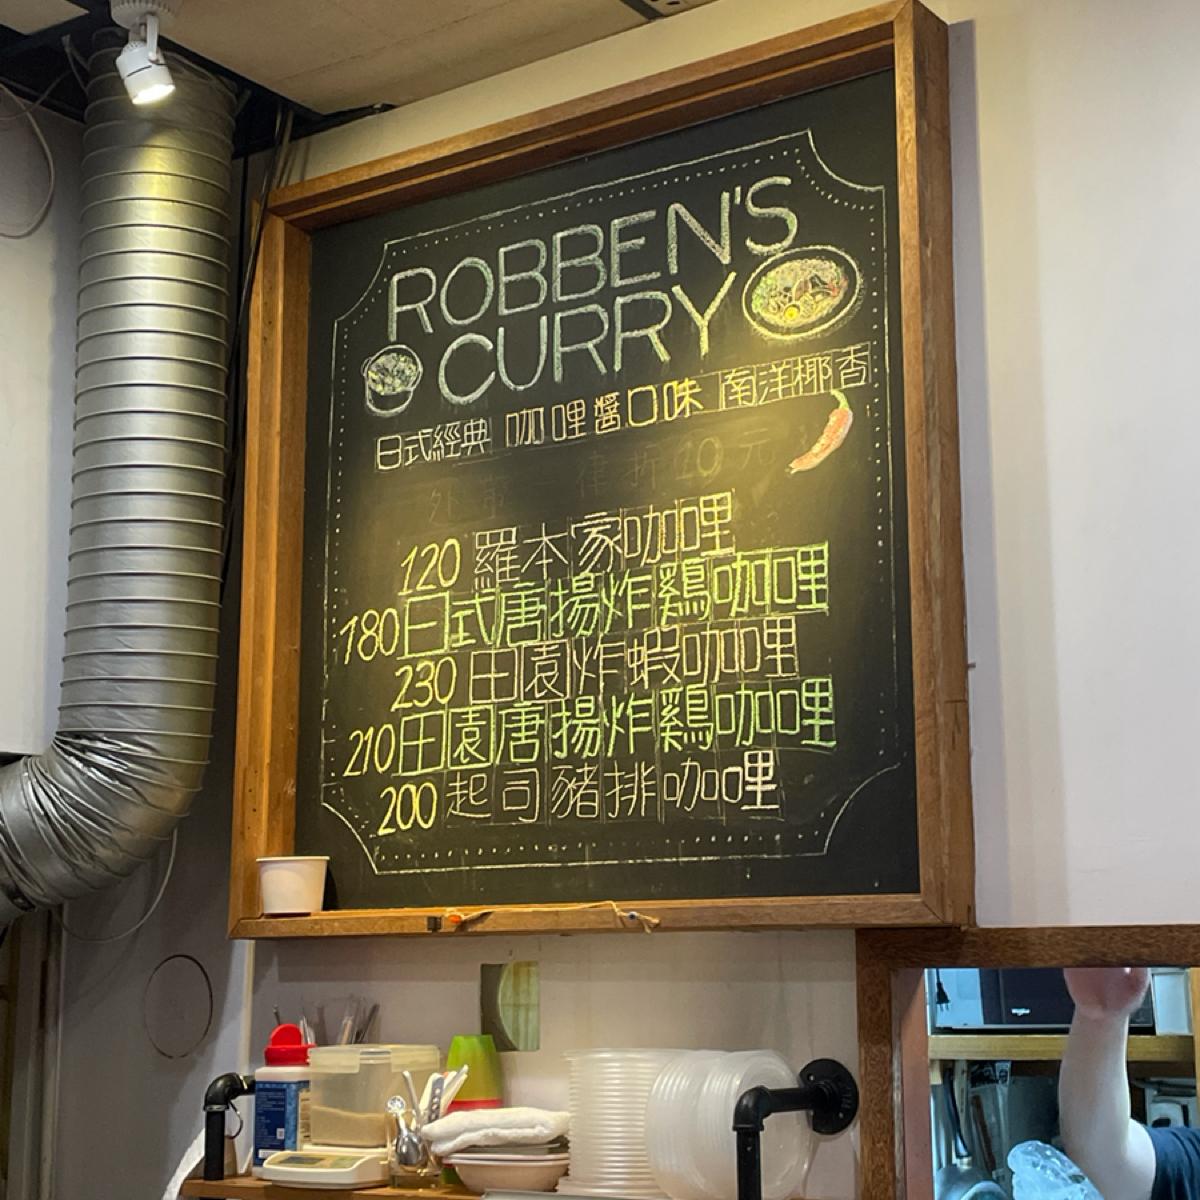 ROBBEN'S
CURRY
日式經典 咖哩醬口味 南洋椰香
外帶一律折10元
120 羅本家咖哩
180 日式唐揚炸鷄咖哩
230 田園炸蝦咖哩
210 田園唐揚炸鷄咖哩
200 起司豬排咖哩